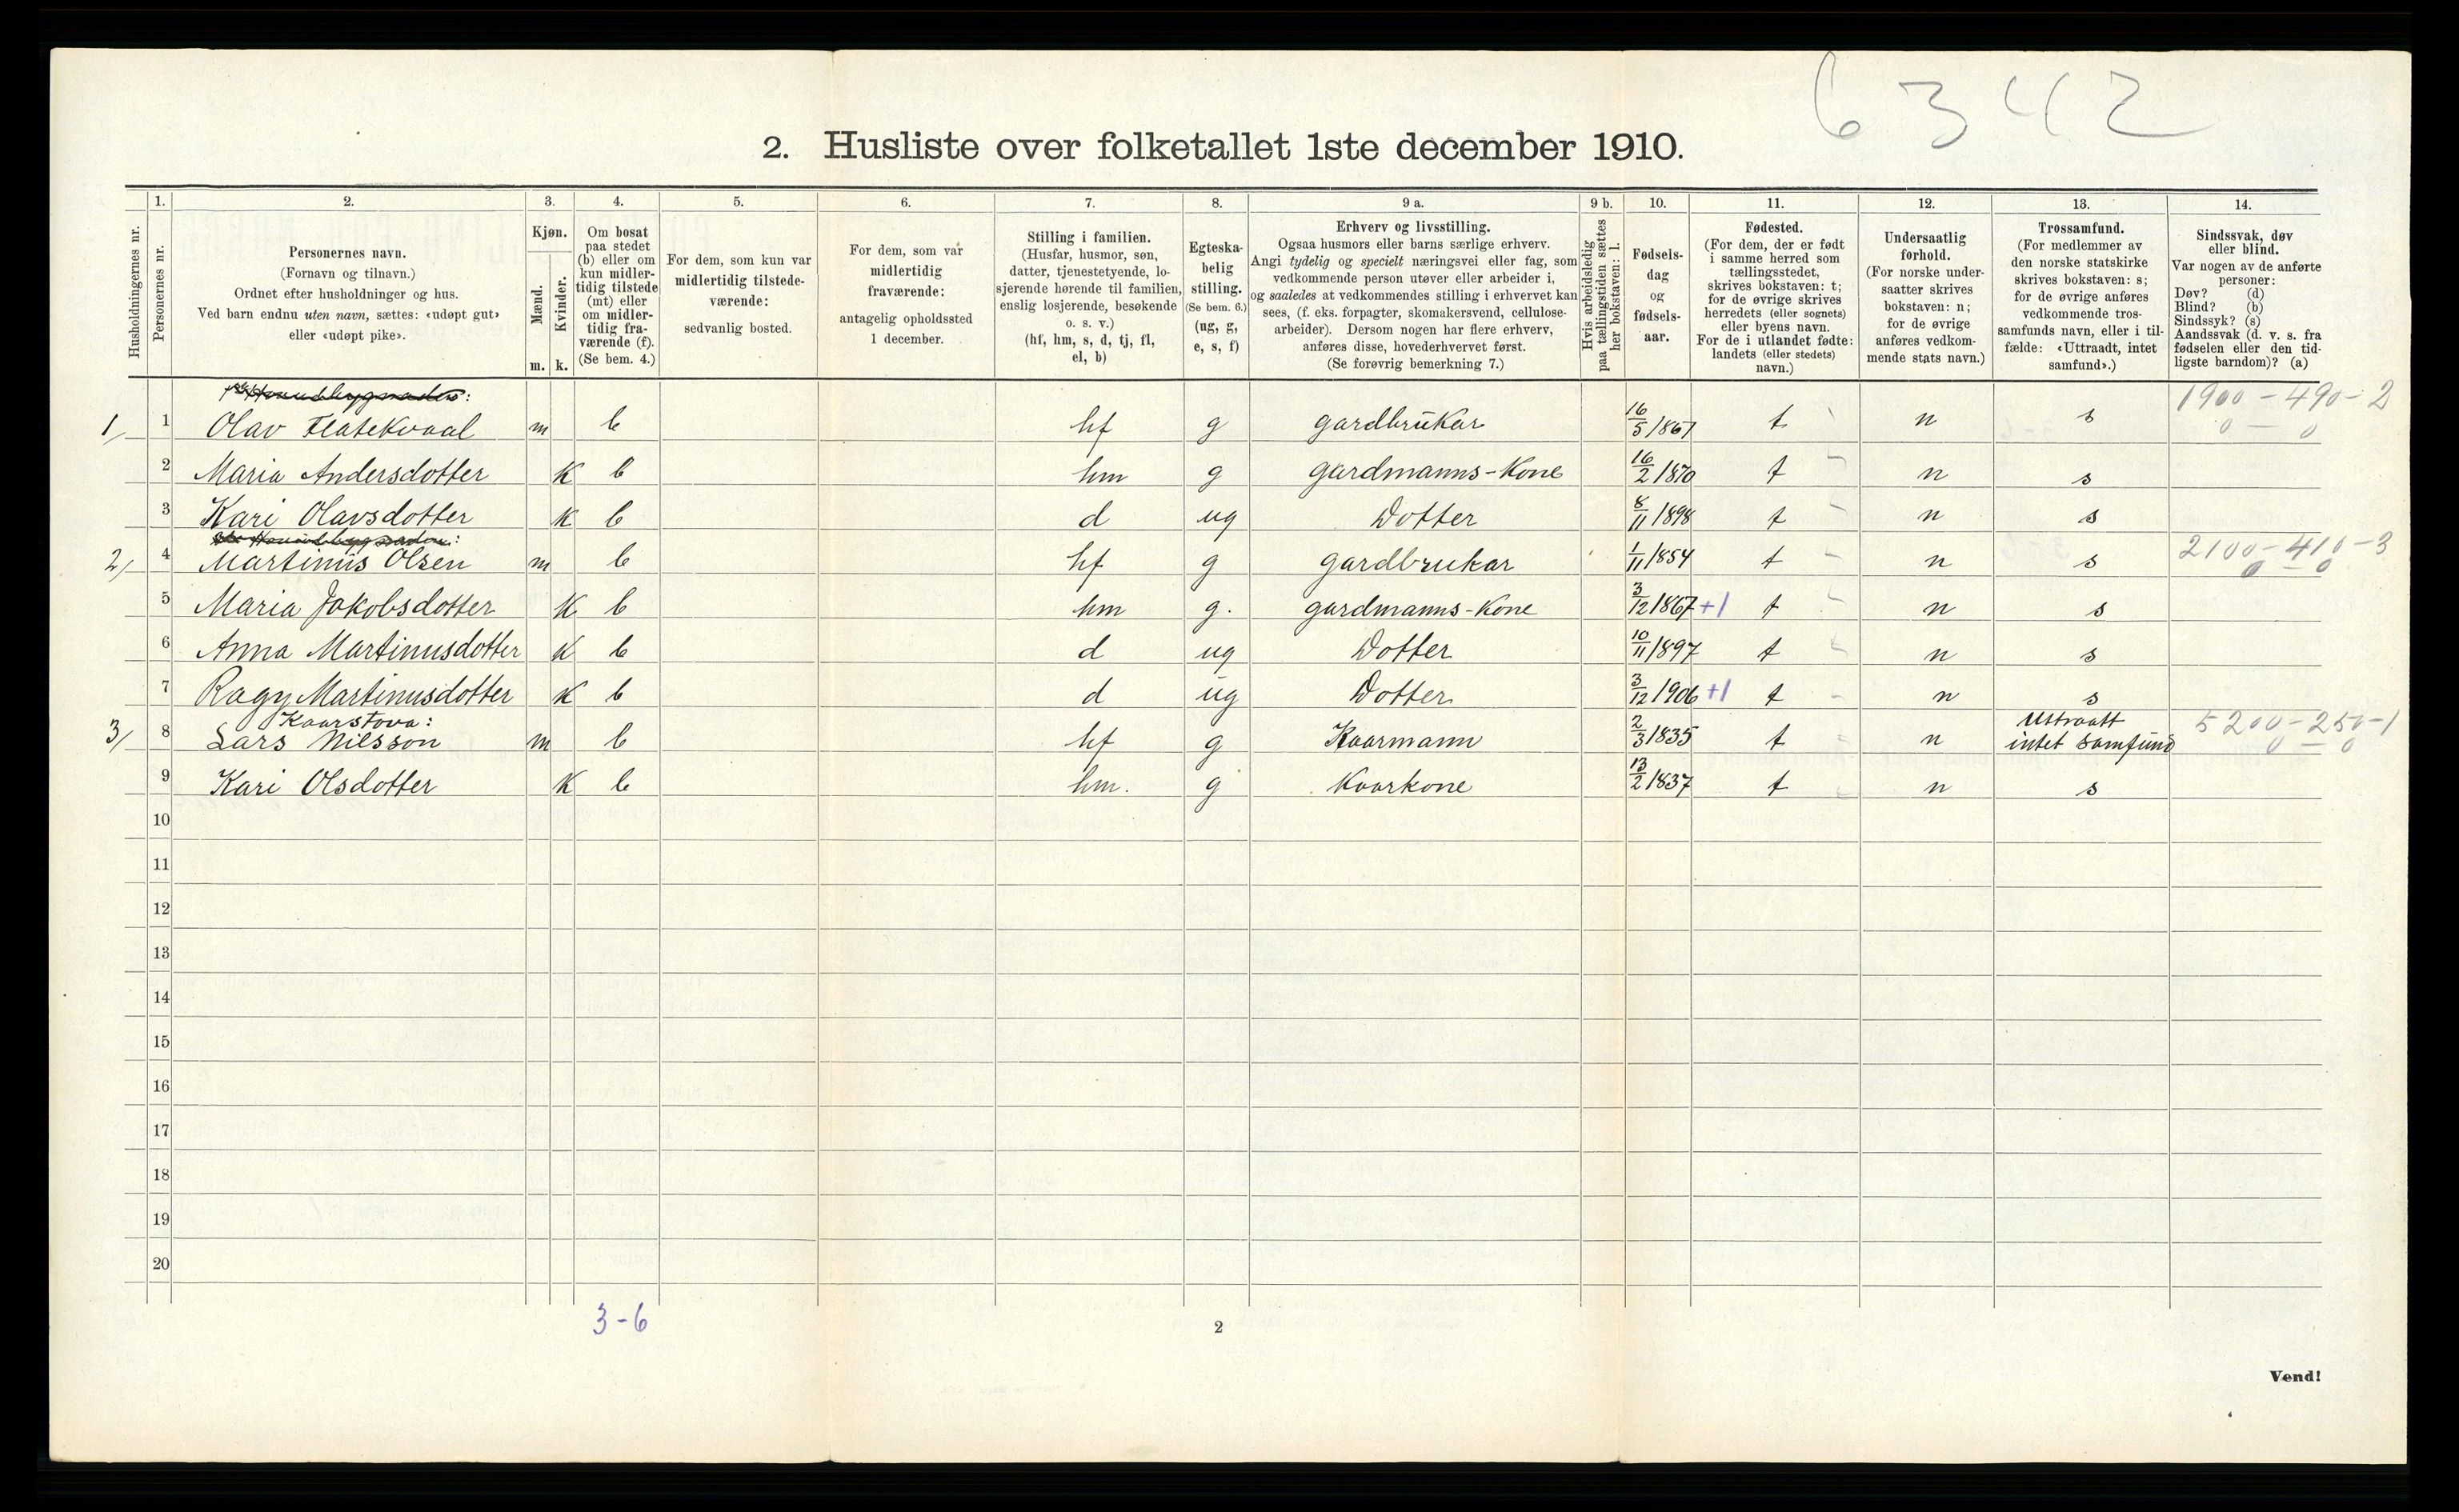 6342
2. Husliste over folketallet 1ste december 1910.
Husholdningernes nr.
1.
Personernes nr.
2.
Personernes navn.
(Fornavn og tilnavn.)
Ordnet efter husholdninger og hus.
Ved barn endnu uten navn, sættes: «udøpt gut»
eller «udøpt pike».
3.
Kjøn.
Mænd.
Kvinder.
m. k.
4.
Om bosat
paa stedet
(b) eller om
kun midler-
tidig tilstede
(mt) eller
om midler-
tidig fra-
værende (f).
(Se bem. 4.)
5.
For dem, som kun var
midlertidig tilstede-
værende:
sedvanlig bosted.
6.
For dem, som var
midlertidig
fraværende:
antagelig opholdssted
1 december.
7.
Stilling i familien.
(Husfar, husmor, søn,
datter, tjenestetyende, lo-
sjerende hørende til familien,
enslig losjerende, besøkende
o. s. v.)
(hf, hm, s, d, tj, fl,
el, b)
8.
Egteska-
belig
stilling.
(Se bem. 6.)
(ug, g,
e, s, f)
9 a.
Erhverv og livsstilling.
Ogsaa husmors eller barns særlige erhverv.
Angi tydelig og specielt næringsvei eller fag, som
vedkommende person utøver eller arbeider i,
og saaledes at vedkommendes stilling i erhvervet kan
sees, (f. eks. forpagter, skomakersvend, cellulose-
arbeider). Dersom nogen har flere erhverv,
anføres disse, hovederhvervet først.
(Se forøvrig bemerkning 7.)
9 b.
Hvis arbeidsledig
paa tællingstiden sættes
her bokstaven: l.
10.
Fødsels-
dag
og
fødsels-
aar.
11.
Fødested.
(For dem, der er født
i samme herred som
tællingsstedet,
skrives bokstaven: t;
for de øvrige skrives
herredets (eller sognets)
eller byens navn.
For de i utlandet fødte:
landets (eller stedets)
navn.)
12.
Undersaatlig
forhold.
(For norske under-
saatter skrives
bokstaven: n;
for de øvrige
anføres vedkom-
mende stats navn.)
13.
Trossamfund.
(For medlemmer av
den norske statskirke
skrives bokstaven: s;
for de øvrige anføres
vedkommende tros-
samfunds navn, eller i til-
fælde: «Uttraadt, intet
samfund».)
14.
Sindssvak, døv
eller blind.
Var nogen av de anførte
personer:
Døv? (d)
Blind? (b)
Sindssyk? (s)
Aandssvak (d. v. s. fra
fødselen eller den tid-
ligste barndom)? (a)
1900-490-2
1/ 1 Olav Flatekvaal m b hf g gardbrukar 16/5 1867 t n s 0 - 0
2 Maria Andersdotter k b hm g gardmanns-kone 16/2 1870 t n s
3 Kari Olavsdotter k b d ug Dotter 8/11 1898 t n s
2/ 4 Martinus Olsen m b hf g gardbrukar 1/11 1854 t n s 2100-410-3
0 - 0
5 Maria Jakobsdotter k b hm g. gardmanns-kone 3/12 1867 +1 t n s
6 Anna Martinusdotter k b d ug Dotter 10/11 1897 t n s
7 Ragn Martinusdotter k b d ug Dotter 3/12 1906 +1 t n s
Kaarstova: Uttraatt 5200-250-1
3/ 8 Lars Nilsson m b hf g Kaarmann 2/3 1835 t n intet samfund 0 - 0
9 Kari Olsdotter k b hm. g Kaarkone 13/2 1837 t n s
10
11
12
13
14
15
16
17
18
19
20
3-6
2
Vend!